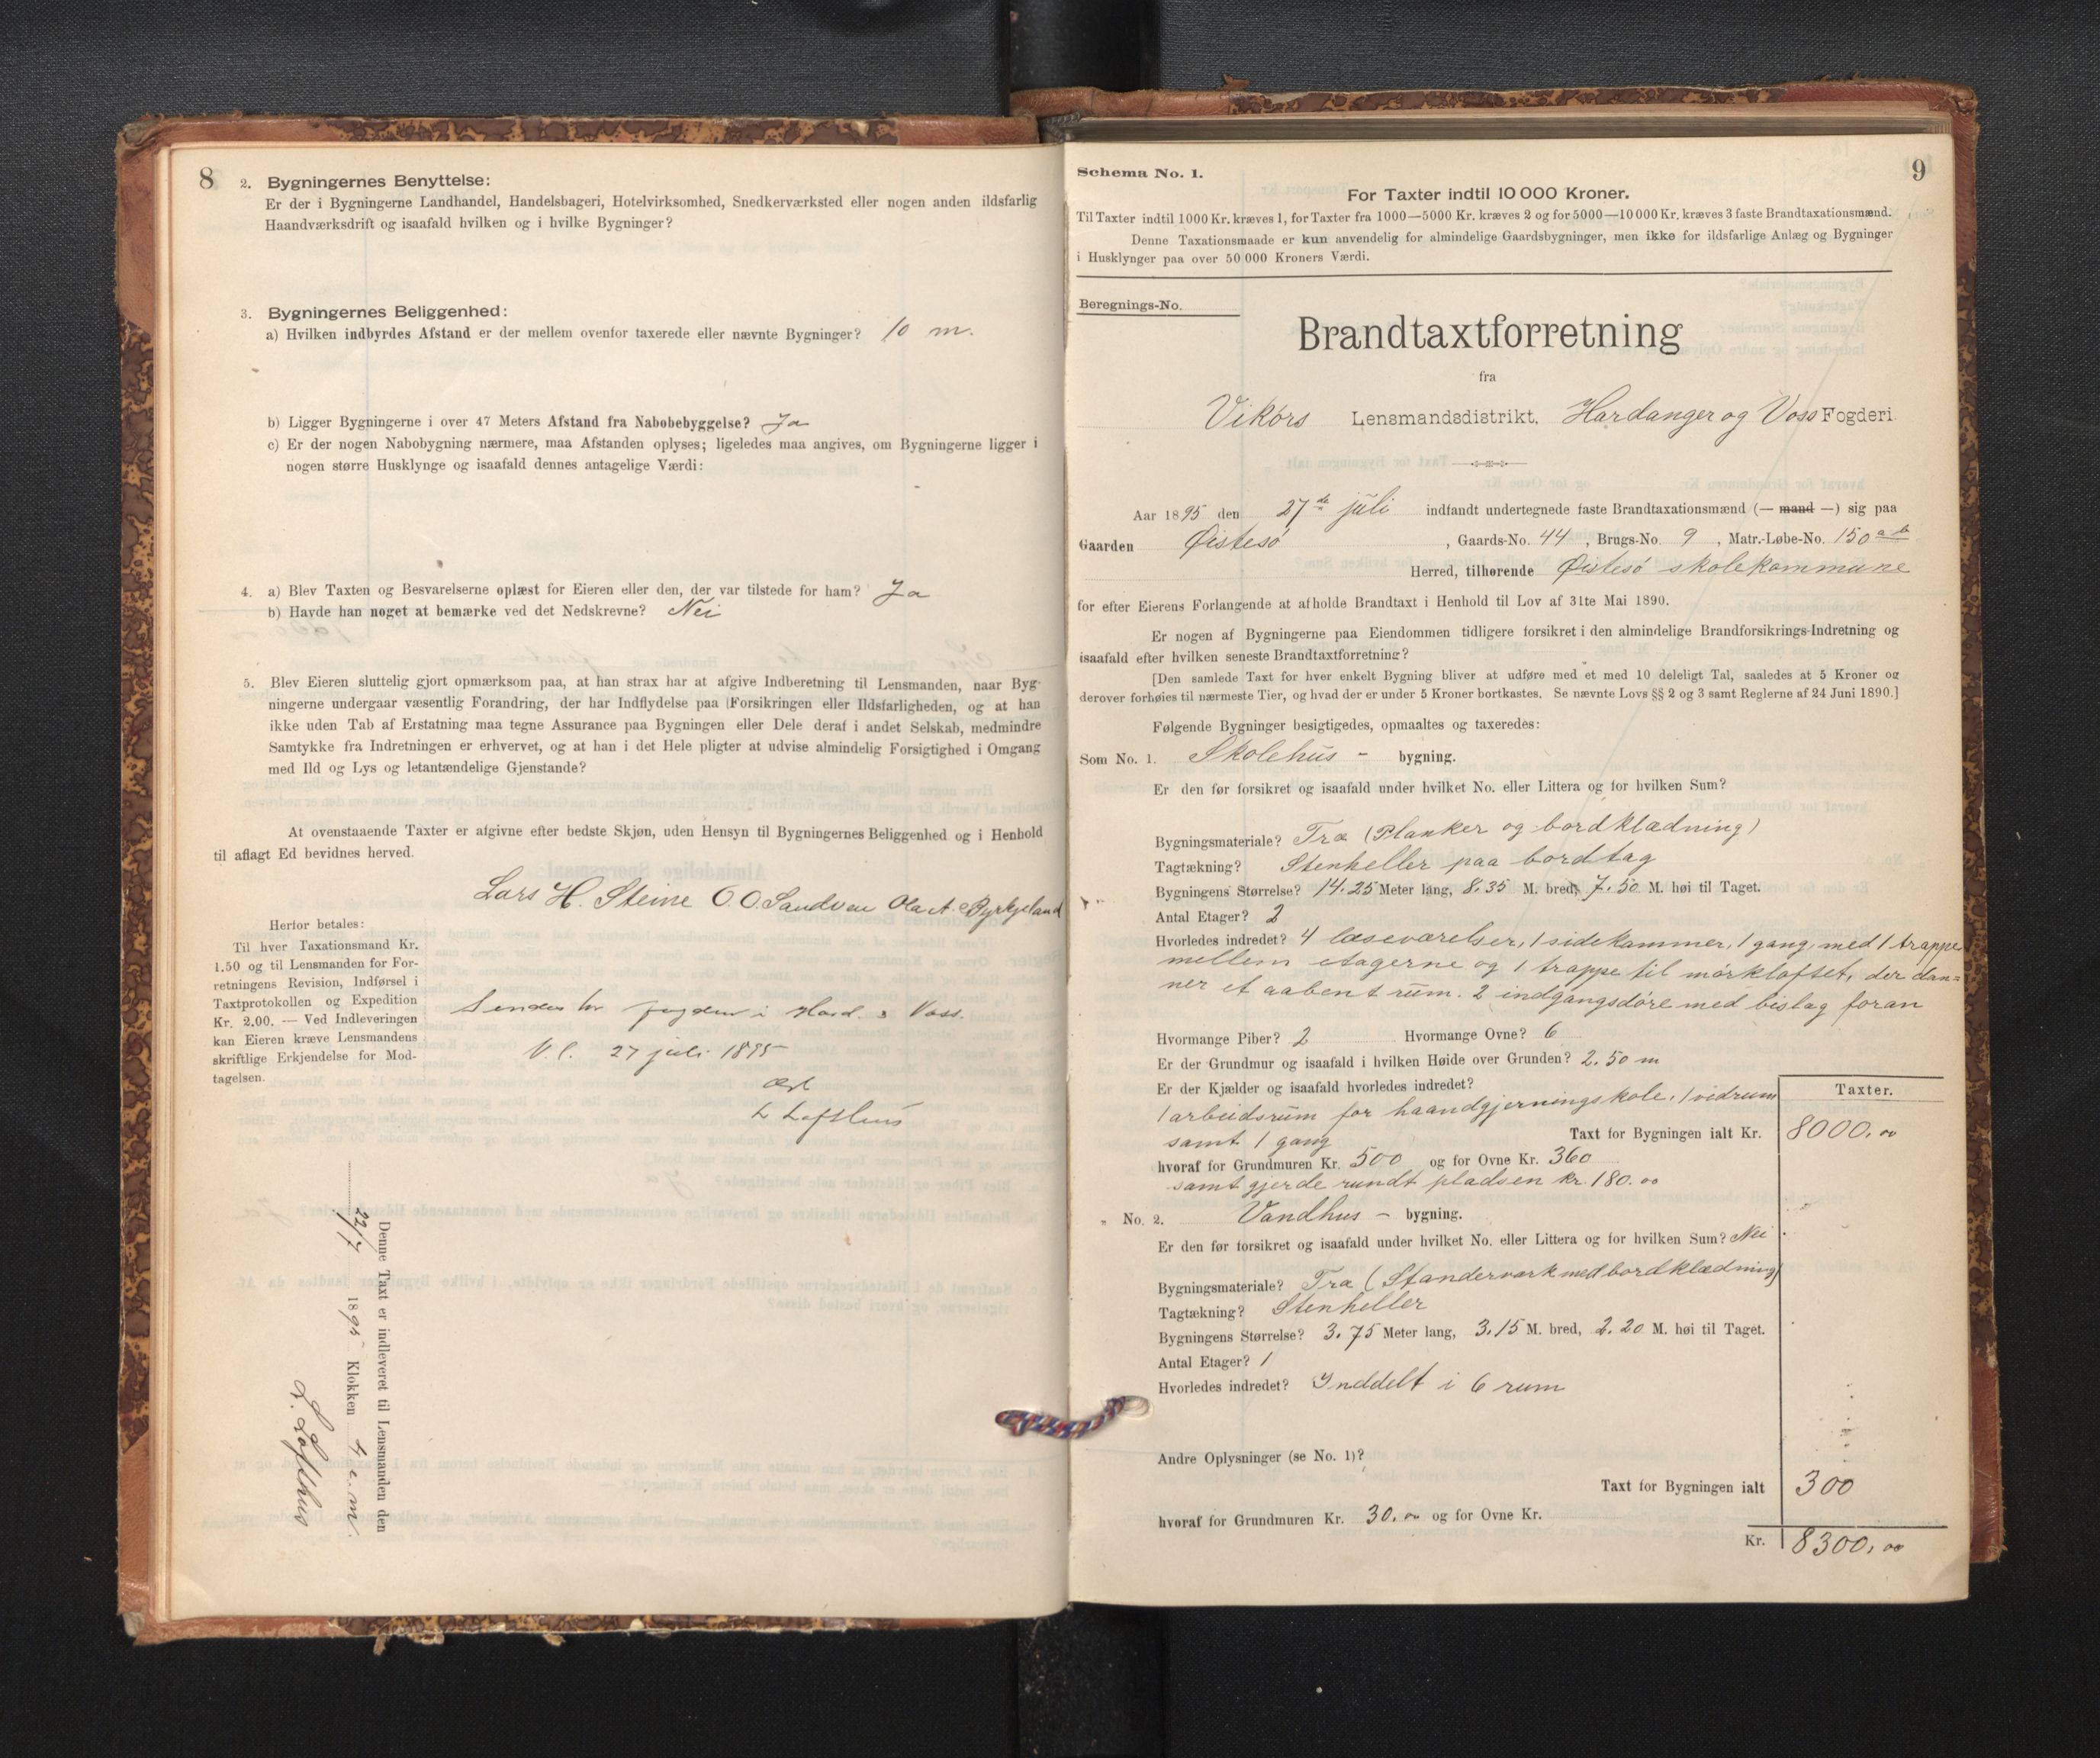 8
2. Bygningernes Benyttelse:
Er der i Bygningerne Landhandel, Handelsbageri, Hotelvirksomhed, Snedkerværksted eller nogen anden ildsfarlig
Haandværksdrift og isaafald hvilken og i hvilke Bygninger?
3. Bygningernes Beliggenhed:
a) Hvilken indbyrdes Afstand er der mellem ovenfor taxerede eller nævnte Bygninger? 10 m.
b) Ligger Bygningerne i over 47 Meters Afstand fra Nabobebyggelse? Ja
c) Er der nogen Nabobygning nærmere, maa Afstanden oplyses; ligeledes maa angives, om Bygningerne ligger i
nogen større Husklynge og isaafald dennes antagelige Værdi:
4. a) Blev Taxten og Besvarelserne oplæst for Eieren eller den, der var tilstede for ham? Ja
b) Havde han noget at bemærke ved det Nedskrevne? Nei
5. Blev Eieren sluttelig gjort opmærksom paa, at han strax har at afgive Indberetning til Lensmanden, naar Byg-
ningerne undergaar væsentlig Forandring, der har Indflydelse paa Forsikringen eller Ildsfarligheden, og at han
ikke uden Tab af Erstatning maa tegne Assurance paa Bygningen eller Dele deraf i andet Selskab, medmindre
Samtykke fra Indretningen er erhvervet, og at han i det Hele pligter at udvise almindelig Forsigtighed i Omgang
med Ild og Lys og letantændelige Gjenstande?
At ovenstaaende Taxter er afgivne efter bedste Skjøn, uden Hensyn til Bygningernes Beliggenhed og i Henhold
til aflagt Ed bevidnes herved.
Lars H. Steine O. O. Sandven Ola A. Byrkjeland
Herfor betales:
Til hver Taxationsmand Kr.
1.50 og til Lensmanden for For-
retningens Revision, Indførsel i
Taxtprotokollen og Expedition
Kr. 2.00. — Ved Indleveringen
kan Eieren kræve Lensmandens
skriftlige Erkjendelse for Mod-
tagelsen.
Sendes hr fogden i Hard. & Voss.
V. l. 27 juli 1895
L Lofthus
Denne Taxt er indleveret til Lensmanden den
22/7 1895 Klokken 4 e.m.
L. Lofthus
9
Schema No. 1.
For Taxter indtil 10 000 Kroner.
Til Taxter indtil 1000 Kr. kræves 1, for Taxter fra 1000—5000 Kr. kræves 2 og for 5000—10000 Kr. kræves 3 faste Brandtaxationsmænd.
Denne Taxationsmaade er kun anvendelig for almindelige Gaardsbygninger, men ikke for ildsfarlige Anlæg og Bygninger
i Husklynger paa over 50 000 Kroners Værdi.
Beregnings-No.
Brandtaxtforretning
fra
Vikørs Lensmandsdistrikt, Hardanger og Voss Fogderi
Aar 1895 den 27de juli indfandt undertegnede faste Brandtaxationsmænd (— mand —) sig paa
Gaarden Øistesø, Gaards-No. 44, Brugs-No. 9, Matr.-Løbe-No. 150 a b
Herred, tilhørende Øistesø skolekommune
for efter Eierens Forlangende at afholde Brandtaxt i Henhold til Lov af 31te Mai 1890.
Er nogen af Bygningerne paa Eiendommen tidligere forsikret i den almindelige Brandforsikrings-Indretning og
isaafald efter hvilken seneste Brandtaxtforretning?
[Den samlede Taxt for hver enkelt Bygning bliver at udføre med et med 10 deleligt Tal, saaledes at 5 Kroner og
derover forhøies til nærmeste Tier, og hvad der er under 5 Kroner bortkastes. Se nævnte Lovs §§ 2 og 3 samt Reglerne af 24 Juni 1890.]
Følgende Bygninger besigtigedes, opmaaltes og taxeredes:
Som No. 1. Skolehus - bygning.
Er den før forsikret og isaafald under hvilket No. eller Littera og for hvilken Sum?
Bygningsmateriale? Træ (Planker og bordklædning)
Tagtækning? Stenheller paa bordtag
Bygningens Størrelse? 14.25 Meter lang, 8.35 M. bred, 7.50 M. høi til Taget.
Antal Etager? 2
Hvorledes indredet? 4 læseværelser, 1 sidekammer, 1 gang, med 1 trappe
mellem etagerne og 1 trappe til mørkloftet, der dan=
ner et aabent rum. 2 indgangsdøre med bislag foran
Hvormange Piber? 2 Hvormange Ovne? 6
Er der Grundmur og isaafald i hvilken Høide over Grunden? 2.50 m
Er der Kjælder og isaafald hvorledes indredet?
1 arbeidsrum for haandgjerningskole, 1 vidrum
Taxter.
samt 1 gang Taxt for Bygningen ialt Kr. 8000,00
hvoraf for Grundmuren Kr. 500 og for Ovne Kr. 360
samt gjerde rundt pladsen kr. 180.00
No. 2. Vandhus - bygning.
Er den før forsikret og isaafald under hvilket No. eller Littera og for hvilken Sum? Nei
Bygningsmateriale? Træ (Standerværk med bordklædning)
Tagtækning? Stenheller
Bygningens Størrelse? 3.75 Meter lang, 3.15 M. bred, 2.20 M. høi til Taget.
Antal Etager? 1
Hvorledes indredet? Inddelt i 6 rum
Andre Oplysninger (se No. 1)?
Taxt for Bygningen ialt 300
hvoraf for Grundmuren Kr. 30.00 og for Ovne Kr.
Kr. 8300,00